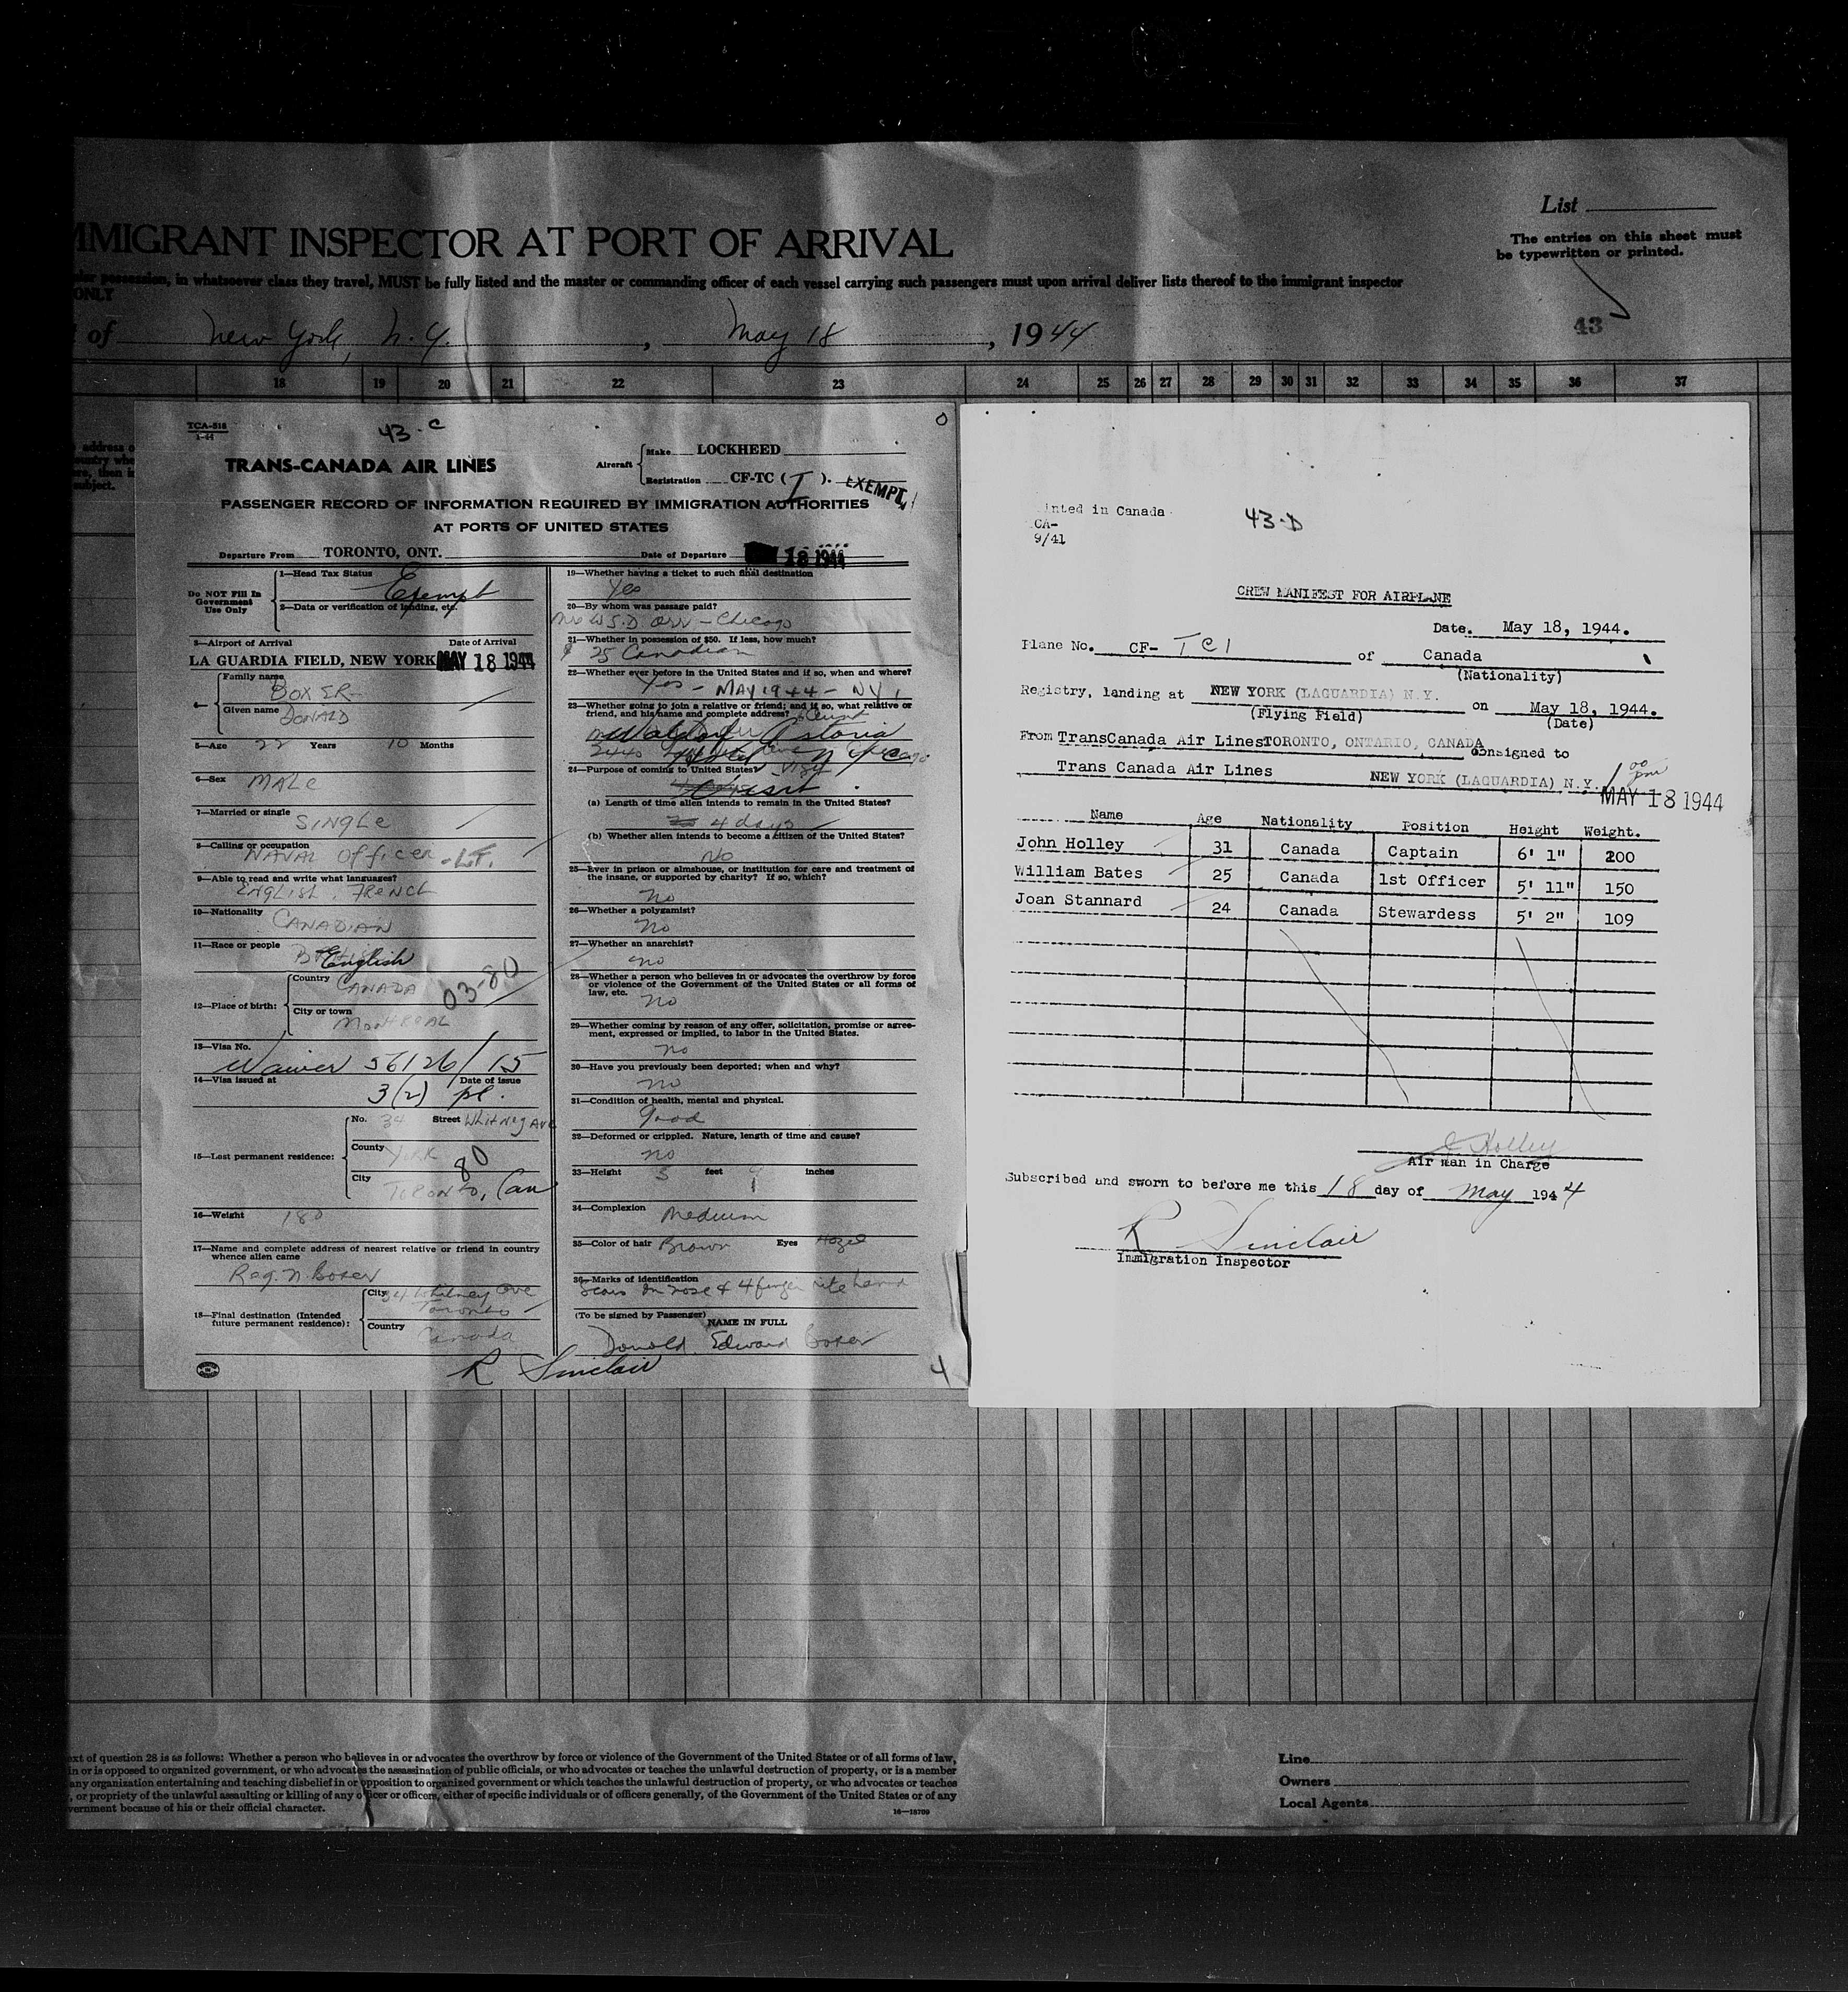 List
The entries on this sheet must
be typewritten or printed.
MMIGRANT INSPECTOR AT PORT OF ARRIVAL
possession, in whatsoever class they travel, MUST be fully listed and the master or commanding officer of each vessel carrying such passengers must upon arrival deliver lists thereof to the immigrant inspector
ONLY
43
of New York, N.Y. , May 18 , 1944
18 19 20 21 22 23 24 25 26 27 28 29 30 31 32 33 34 35 36 37
address o
untry who
re, then in
subject.
TCA-518
1-44
43-C
TRANS-CANADA AIR LINES
Aircraft
Make LOCKHEED
Registration CF-TC ( I ). EXEMPT
PASSENGER RECORD OF INFORMATION REQUIRED BY IMMIGRATION AUTHORITIES
AT PORTS OF UNITED STATES
Departure From TORONTO, ONT. Date of Departure 18 1944
Do NOT Fill In
Government
Use Only
1—Head Tax Status Exempt
2—Data or verification of landing, etc.
3—Airport of Arrival Date of Arrival
LA GUARDIA FIELD, NEW YORK MAY 18 1944
4— Family name BOXER
Given name DONALD
5—Age 22 Years 10 Months
6—Sex MALE
7—Married or single SINGLE
8—Calling or occupation NAVAL OFFICER - LT.
9—Able to read and write what languages?
ENGLISH, FRENCH
10—Nationality CANADIAN
11—Race or people English
12—Place of birth: Country CANADA 03-80
City or town MONTREAL
13—Visa No.
Waiver 56126/15
14—Visa issued at Date of issue
3(2) pl.
15—Last permanent residence: No. 34 Street Whitney Ave
County York
City TORONTO, Can 80
16—Weight 180
17—Name and complete address of nearest relative or friend in country
whence alien came
Reg. N. Boxer
18—Final destination (Intended
future permanent residence): City 34 Whitney Ave
Toronto
Country Canada
19—Whether having a ticket to such final destination
Yes
20—By whom was passage paid?
Mrs W.S.D. Orr - Chicago
21—Whether in possession of $50. If less, how much?
$ 25 Canadian
22—Whether ever before in the United States and if so, when and where?
Yes - MAY 1944 - NY,
23—Whether going to join a relative or friend; and if so, what relative or
friend, and his name and complete address?
Waldorf Astoria
24—Purpose of coming to United States?
Visit
(a) Length of time alien intends to remain in the United States?
4 days
(b) Whether alien intends to become a citizen of the United States?
No
25—Ever in prison or almshouse, or institution for care and treatment of
the insane, or supported by charity? If so, which?
No
26—Whether a polygamist?
No
27—Whether an anarchist?
no
28—Whether a person who believes in or advocates the overthrow by force
or violence of the Government of the United States or all forms of
law, etc.
no
29—Whether coming by reason of any offer, solicitation, promise or agree-
ment, expressed or implied, to labor in the United States.
no
30—Have you previously been deported; when and why?
no
31—Condition of health, mental and physical.
Good
32—Deformed or crippled. Nature, length of time and cause?
no
33—Height 5 feet 9 inches
34—Complexion Medium
35—Color of hair Brown Eyes Hazel
36—Marks of identification
Scars on nose & 4 finger rite hand
(To be signed by Passenger)
NAME IN FULL
Donald Edward Boxer
R Sinclair
4
inted in Canada
CA-
9/41
43-D
CREW MANIFEST FOR AIRPLANE
Date. May 18, 1944.
Plane No. CF- TCI of Canada
(Nationality)
Registry, landing at NEW YORK (LAGUARDIA) N.Y. on May 18, 1944.
(Flying Field) (Date)
From TransCanada Air Lines TORONTO, ONTARIO, CANADA Consigned to
Trans Canada Air Lines NEW YORK (LAGUARDIA) N.Y. 1 00 pm
MAY 18 1944
Name Age Nationality Position Height Weight.
John Holley 31 Canada Captain 6' 1" 200
William Bates 25 Canada 1st Officer 5' 11" 150
Joan Stannard 24 Canada Stewardess 5' 2" 109
J Holley
Air man in Charge
Subscribed and sworn to before me this 18 day of May 1944
R Sinclair
Immigration Inspector
ext of question 28 is as follows: Whether a person who believes in or advocates the overthrow by force or violence of the Government of the United States or of all forms of law,
in or is opposed to organized government, or who advocates the assassination of public officials, or who advocates or teaches the unlawful destruction of property, or is a member
any organization entertaining and teaching disbelief in or opposition to organized government or which teaches the unlawful destruction of property, or who advocates or teaches
, or propriety of the unlawful assaulting or killing of any officer or officers, either of specific individuals or of officers generally, of the Government of the United States or of any
vernment because of his or their official character.
16—18709
Line
Owners
Local Agents